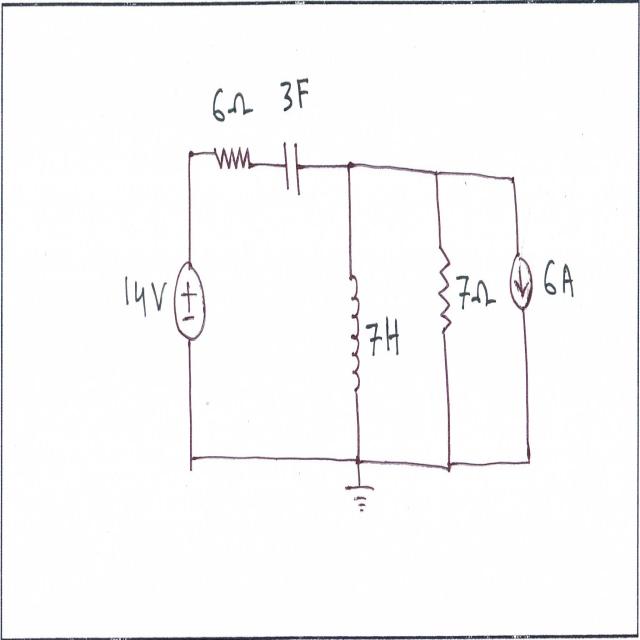 6Ω 3F
14V
+
-
7H
7Ω
6A